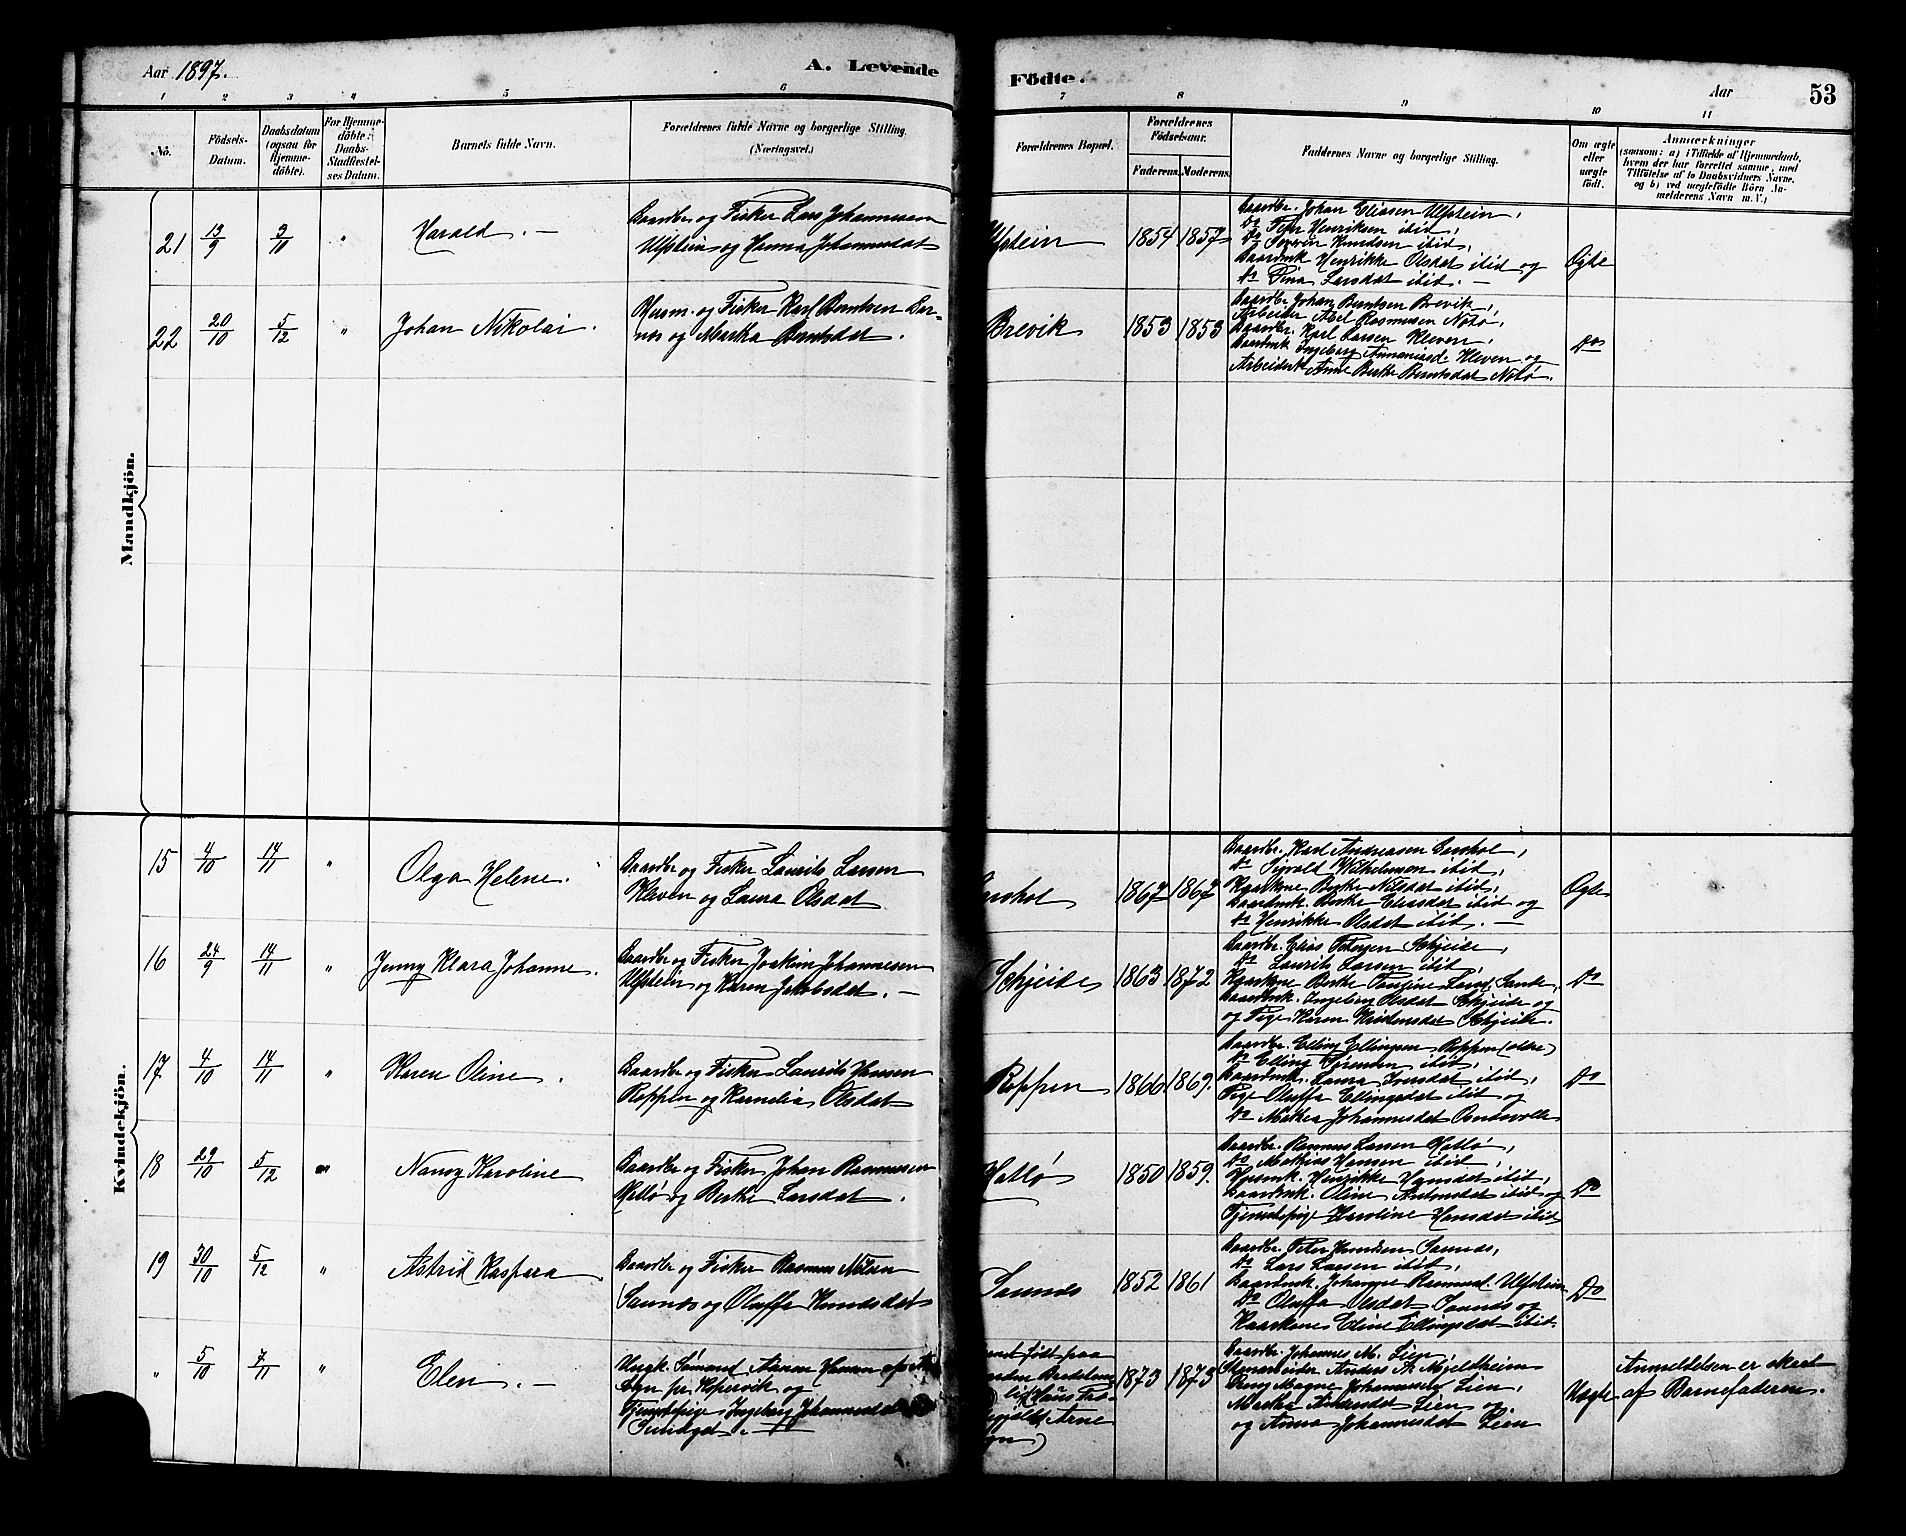 Aar 1897.
A. Levende
Födte.
Aar
53
1 2 3 4 5 6 7 8 9 10 11
No.
Födsels-
Datum.
Daabsdatum
(ogsaa for
Hjemme-
döbte).
For Hjemme-
döbte:
Daabs-
Stadfæstel-
ses Datum.
Barnets fulde Navn.
Forældrenes fulde Navne og borgerlige Stilling.
(Næringsvei.)
Forældrenes Bopæl.
Forældrenes
Födselsaar.
Faderens.
Moderens.
Faddernes Navne og borgerlige Stilling.
Om ægte
eller
uægte
födt.
Anmærkninger
(saasom: a) i Tilfælde af Hjemmedaab,
hvem der har forrettet samme, med
Tilföielse af to Daabsvidners Navne,
og b) ved uægtefödte Börn An-
melderens Navn m.V.)
Mandkjön.
21 13/9 9/11 " Harald.
Gaardbr og Fisker Lars Johannesen
Ulfstein og Hanna Johannesdat
Ulfstein 1854 1857
Gaardbr. Johan Eliasen Ulfstein,
Do Peter Henriksen ibid,
Do Severin Knudsen ibid,
Gaardmk Henrikke Olsdat ibid og
Do Pina Larsdat ibid. —
Ægte
22 20/10 5/12 " Johan Nikolai.
Husm. og Fisker Karl Berntsen
og Martha Berntsdat.
Brevik 1853 1853
Gaardbr. Johan Berntsen Brevik,
Arbeider Abel Rasmusen Notö,
Gaardbr. Karl Larsen Kleven,
Gaardmk Ingeborg Kleven og
Arbeiderk Anne Berthe Berntsdat Notö.
Do
Kvindekjön.
15 4/10 14/11 " Olga Helene.
Gaardbr og Fisker Laurits Larsen
Kleven og Laura Olsdat
1867 1867
Gaardbr. Karl Andreasen
Do Sivald Wilhelmsen ibid,
Kaarkone Berthe Nilsdat ibid,
Gaardmk. Berthe Eliasdat ibid og
Do Henrikke Olsdat ibid. —
Ægte
16 24/9 14/11 " Jenny Klara Johanne.
Gaardbr og Fisker Joakim Johannesen
Ulfstein og Karen Jakobsdat. —
Skjeide 1863 1872
Gaardbr. Elias Petersen Skjeide,
Do Laurits Larsen ibid,
Kaarkone Berthe Pauline Sande,
Gaardmk. Ingeborg Olsdat Skjeide og
og Pige Karen Kristensdat Skjeide.
Do
17 4/10 14/11 " Karen Oline.
Gaardbr og Fisker Laurits Hansen
Roppen og Kornelia Olsdat
Roppen 1866 1869.
Gaardbr. Elling Ellingsen Roppen (eldre)
Do Elling ibid,
Gaardmk. Laura Iversdat ibid,
Pige Oluffa Ellingsdat ibid og
Do Mathea Johannesdat
Do
18 29/10 5/12 " Nancy Karoline
Gaardbr og Fisker Johan Rasmusen
Hatlö og Berthe Larsdat.
Hatlö 1850 1859.
Gaardbr. Rasmus Larsen Hatlö,
Do Mathias Hansen ibid,
Husmk. Henrikke Hansdat ibid,
Gaardmk. Oline Antonsdat ibid og
Tjenestepige Karoline Hansdat ibid
Do
19 30/10 5/12 " Astrid Kaspara
Gaardbr og Fisker Rasmus Nilsen
Saunes og Oluffa Knudsdat
Saunes 1852 1861
Gaardbr. Peter Knudsen Saunes,
Do Lars Larsen ibid,
Gaardmk. Johanne Rasmusd. Ulfstein
Do Oluffa Olsdat Saunes og
Kaarkone Eline Ellingsdat ibid.
Do
" 5/10 7/11 " Elen. —
Ungk. Sömand Hansen
pr. Kopervik og
Tjenestepige Ingeborg Johannesdat
född paa
Haus
Arne
1873 1873
Gaardbr. Johannes M. Lien,
Stenarbeider Anders A. Mjeldheim
Ung Magne Johannesen Lien,
Martha Andersdat Lien og
og Anna Johannesdat Lien
Uægte
Anmeldelsen er skeet
af Barnefaderen.